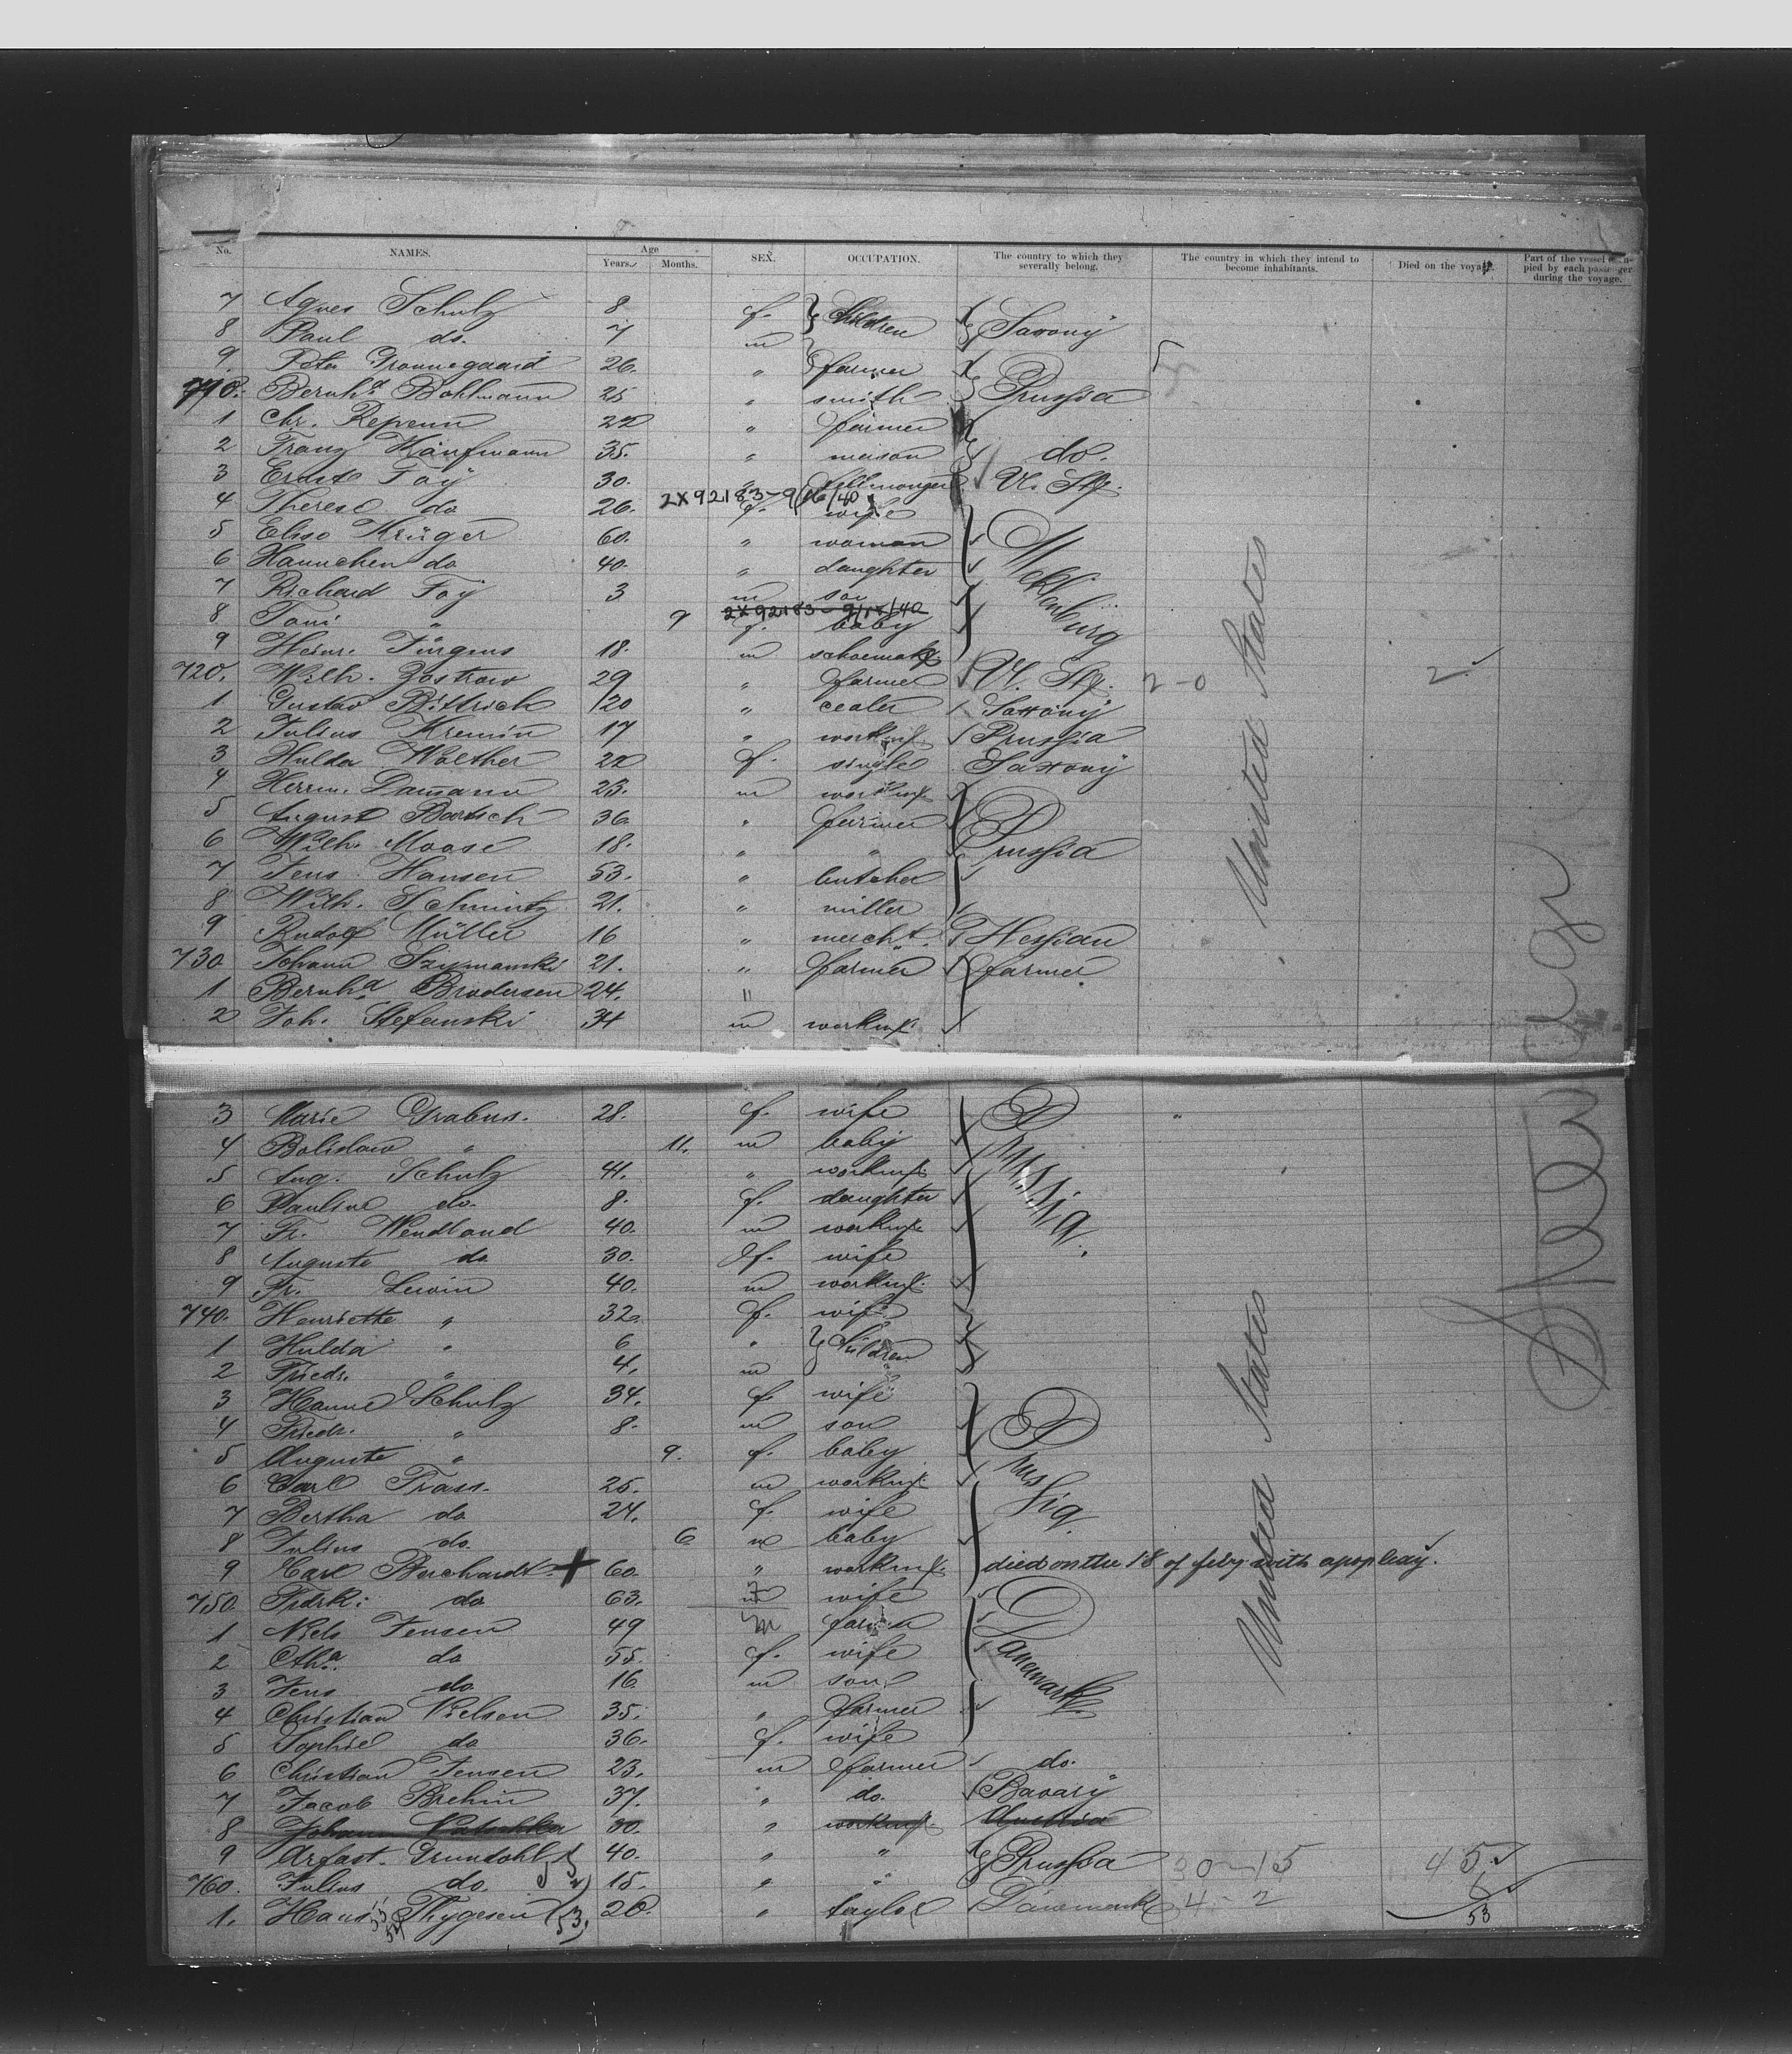 No. NAMES. Age Years. Months. SEX. OCCUPATION. The country to which they severally belong. The country in which they intend to become inhabitants. Died on the voyage. Part of the vessel occupied by each passenger during the voyage.
7 Agnes Schulz 8 f. Children Saxony
8 Paul do. 7 m
9. Peter Gronnegaard 26. " farmer Prussia 5
710. Bernhd Bohlmann 25 " smith
1 Chr. Repenn 22 " farmer
2 Franz Kaufmann 35. " meison do.
3 Ernst Foÿ 30. " fellmonger U. St.
2X92183-9/16/40
4 Therese do 26. f. wife
5 Elise Krüger 60. " woman Mecklenburg
6 Hannchen do 40. " daughter
7 Richard Foÿ 3 m son
2X92183-9/17/40
8 Toni " 9 f. baby
9 Heinr. Jürgens 18. m schoemak.
720. Wilh. Zastrow 29 " farmer U. St. 2-0 2
1 Gustav Bittrich 20 " cealer Saxony
2 Julius Kremin 17 " workm. Prussia
3 Hulda Walther 22 f. single Saxony
4 Herrm. Damann 23. m workm.
5 August Bartsch 36. " farmer Prussia
6 Wilh. Moose 18. " "
7 Jens Hansen 53. " butcher
8 Wilh. Schmintz 21. " miller
9 Rudolf Müller 16 " mercht. Hessian
730 Johann Szymanski 21. " farmer farmer
1 Bernhd Brodersen 24. "
2 Joh. Stefanski 34 m workm.
United States
3 Marie Grabus. 28. f. wife "
4 Bolislaw " 11. m baby Prussia.
5 Aug. Schulz 41. " workm.
6 Pauline do. 8. f. daughter
7 Fr. Wendland 40. m workm.
8 Auguste do 30. f. wife
9 Fr. Lewin 40. m workm.
740. Henriette " 32. f. wife
1 Hulda " 6 " Children
2 Friedr. " 4. m
3 Hanne Schulz 34. f. wife
4 Friedr. " 8. m son Prussia
5 Auguste " 9. f. baby
6 Carl Trass. 25. m workm.
7 Bertha do 24. f. wife
8 Julius do. 6 m baby
9 Karl Borchardt + 60. " workm. died on the 18 of feby with apoplexy.
750. Fridrk: do 63. f wife
1 Niels Jensen 49 m farmer
2 Ctha. do 55. f. wife Danemark
3 Jens do 16. m son
4 Christian Nielsen 35. " farmer
5 Sophie do 36. f. wife
6 Christian Jensen 23. m farmer do.
7 Jacob Brehm 37. " do. Bavary
8 Johann 30. " workm. Austria
9 Arfast. Grundahl 40. " " Prussia 30-15 45
760. Julius do. 15. " "
1. Hans Thygesen 53, 20. " taylor Danemark 4-2 6
53
United States